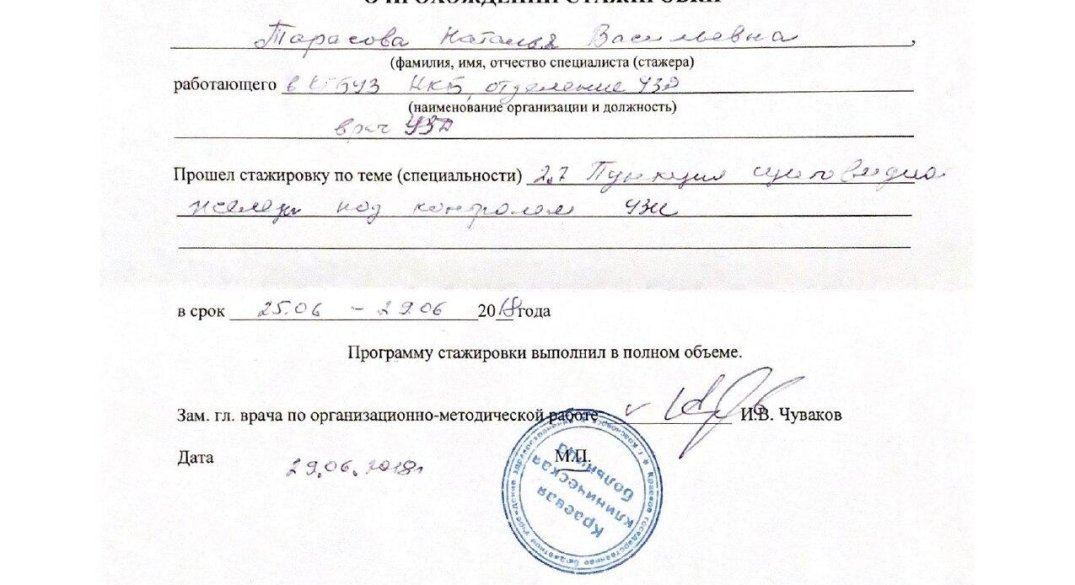 О ПРОХОЖДЕНИИ СТАЖИРОВКИ
Тарасова Наталья Васильевна,
(фамилия, имя, отчество специалиста (стажера)
работающего в КГБУЗ НКБ, отделение УЗД
(наименование организации и должность)
врач УЗД
Прошел стажировку по теме (специальности) 2.7 Пункция щитовидной
железы под контролем УЗИ
в срок 25.06 - 29.06 2018 года
Программу стажировки выполнил в полном объеме.
Зам. гл. врача по организационно-методической работе И.В. Чуваков
Дата 29.06.2018г М.П.
Краевая
клиническая
больница